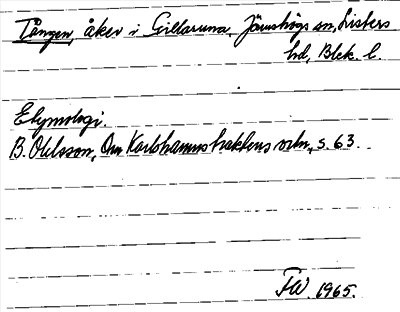 Tången, åker i Gillaruna, Jämshögs sn, Listers
hd, Blek. l.
Etymologi.
B. Ohlsson, Om Karlshamnstraktens ortn., s. 63.
FW. 1965.